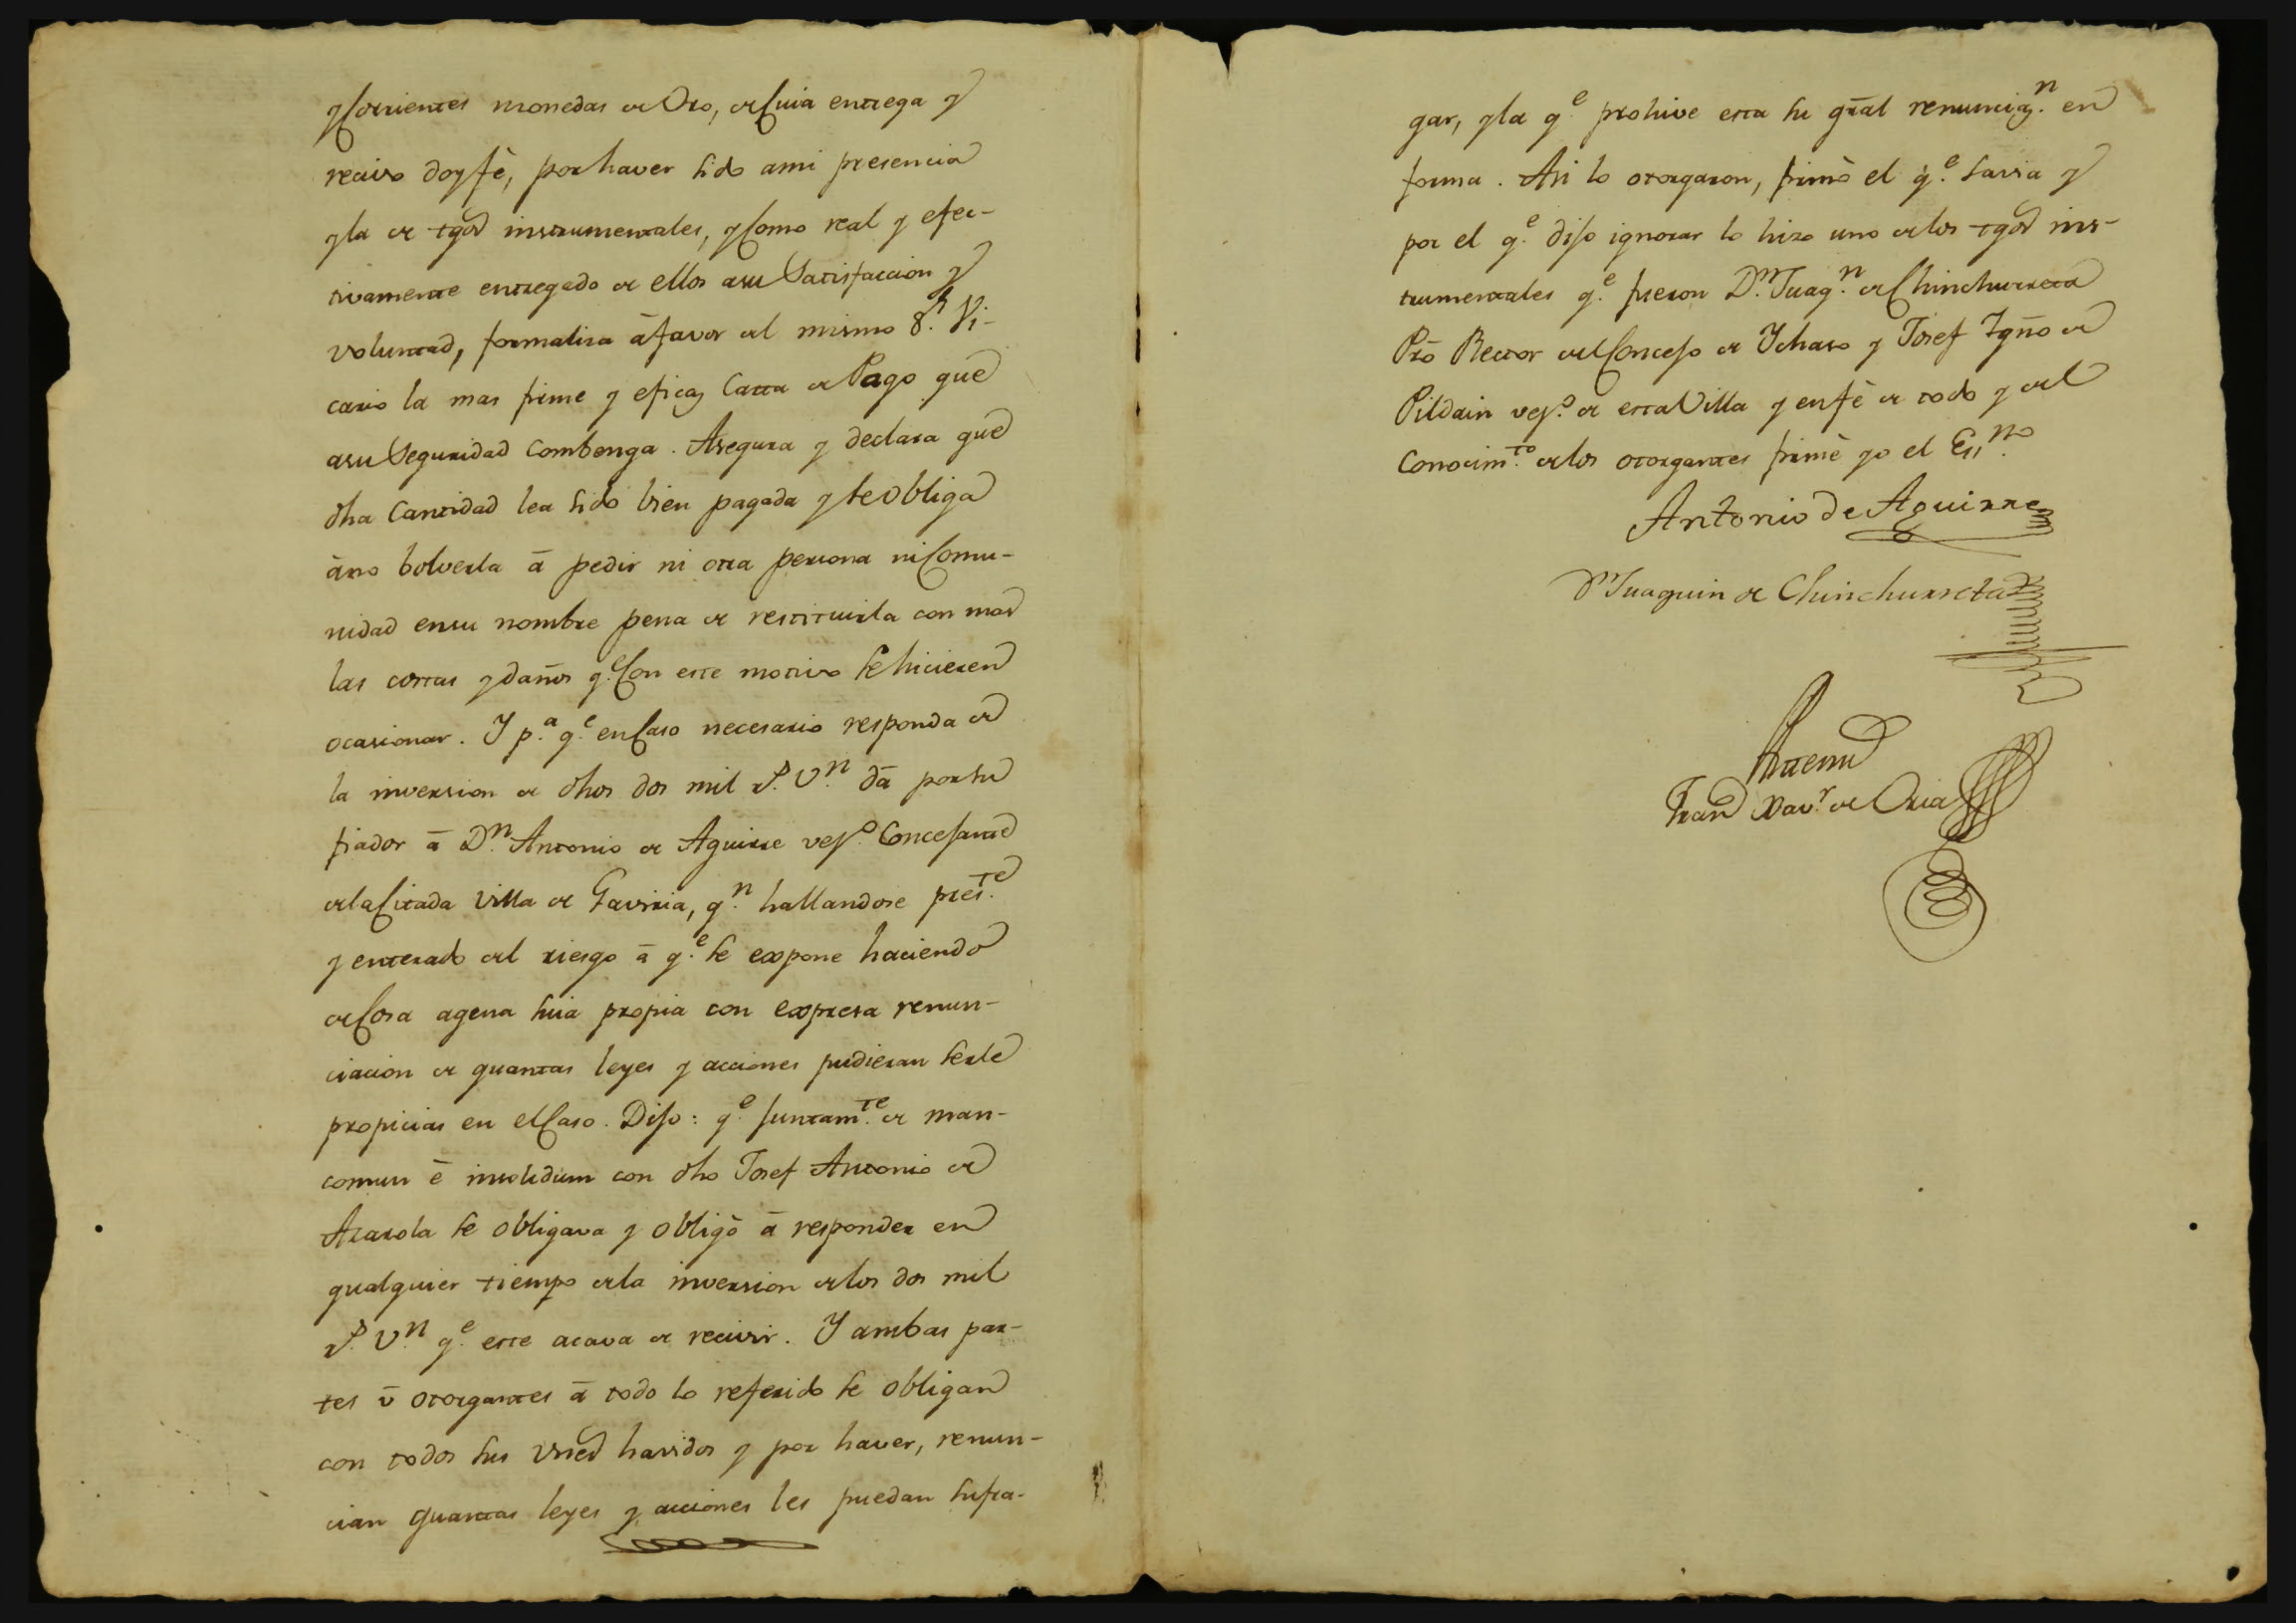 y corrientes monedas de Oro, de cuia entrega y
recivo doy fè, por haver sido ami presencia
y la de tgos instrumentales, y como real y efec-
tivamente entregado de ellos asu Satisfaccion y
voluntad, formaliza à favor del mismo S.r Vi-
cario la mas firme y eficaz Carta de Pago que
asu Seguridad combenga. Asegura y declara que
dha Cantidad lea sido bien pagada y se obliga
àno bolverla à pedir ni otra persona ni comu-
nidad ensu nombre pena de restituirla con mas
las costas y daños q.e con este motivo se hicieren
ocasionar. Y p.a q.e en caso necesario responda de
la inversion de dhos dos mil r.s v.n dà por su
fiador à D.n Antonio de Aguirre vez.o Concejante
de la citada Villa de Gaviria, q.n hallandose pres.te
y enterado del riesgo à q.e se expone haciendo
de cosa agena suia propia con expresa renun-
ciacion de quantas leyes y acciones pudieran serle
propicias en el caso. Dijo: q.e juntam.te de man-
comun è insolidum con dho Josef Antonio de
Azarola se obligava y obligò à responder en
qualquier tiempo de la inversion de los dos mil
r.s v.n q.e este acava de recivir. Y ambas par-
tes ù otorgantes à todo lo referido se obligan
con todos sus vnes havidos y por haver, renun-
cian quantas leyes y acciones les puedan sufra-
gar, y la q.e prohive esta su gral renunciaz.n en
forma. Asi lo otorgaron, firmò el q.e savia y
por el q.e dijo ignorar lo hizo uno de los tgos ins-
trumentales q.e fueron D.n Juaq.n de Chinchurreta
Prõ Rector del Concejo de Ychaso y Josef Ygnõ de
Pildain vez.s de esta Villa y enfè de todo y del
Conocim.to de los otorgantes firmè yo el Es.no
Antonio de Aguirre
D.n Juaquin de Chinchurreta
Antemi
Fran.co Xav.r de Oria